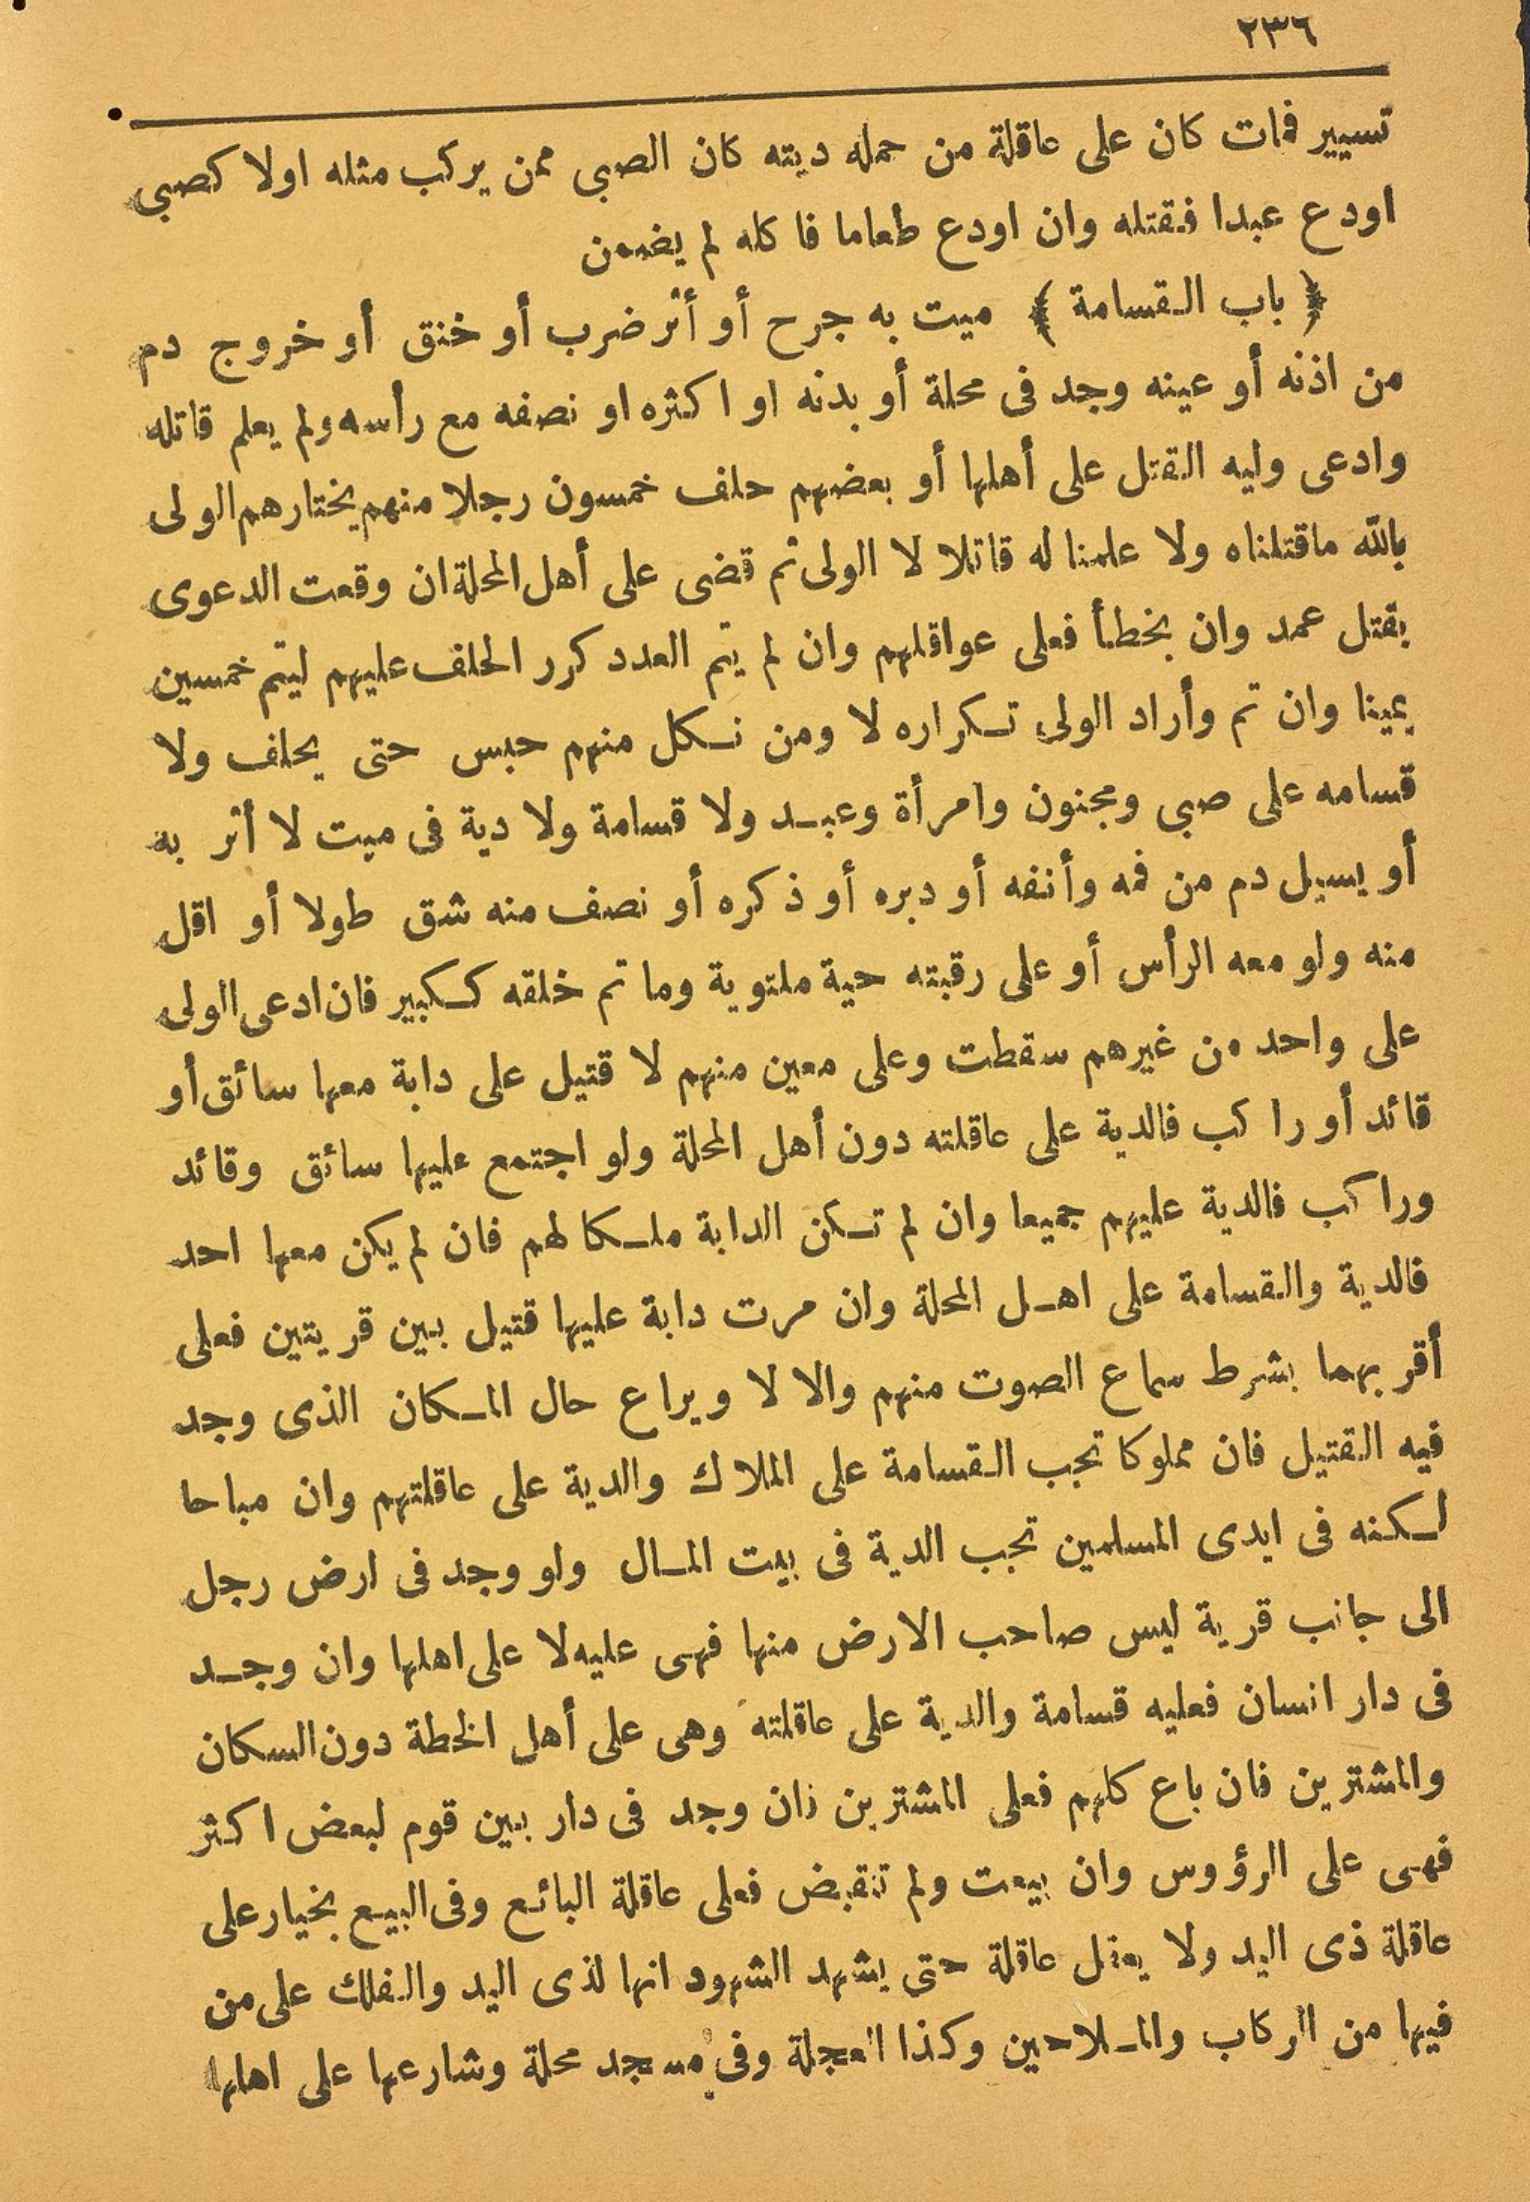 ٢٣٦
تسيير فمات كان على عاقلة من حمله ديته كان الصبى ممن يركب مثله اولا كصبى
اودع عبدا فقتله وان اودع طعاما فاكله لم يضمن
﴿ باب القسامة ﴾ ميت به جرح أو أثر ضرب أو خنق أو خروج دم
من اذنه أو عينه وجد فى محلة أو بدنه او اكثره او نصفه مع رأسه ولم يعلم قاتله
وادعى وليه القتل على أهلها أو بعضهم حلف خمسون رجلا منهم يختارهم الولى
بالله ماقتلناه ولا علمنا له قاتلا لا الولى ثم قضى على أهل المحلة ان وقعت الدعوى
بقتل عمد وان بخطأ فعلى عواقلهم وان لم يتم العدد كرر الحلف عليهم ليتم خمسين
يمينا وان تم وأراد الولى تكراره لا ومن نكل منهم حبس حتى يحلف ولا
قسامه على صبى ومجنون وامرأة وعبد ولا قسامة ولا دية فى ميت لا أثر به
أو يسيل دم من فمه وأنفه أو دبره أو ذكره أو نصف منه شق طولا أو اقل
منه ولو معه الرأس أو على رقبته حية ملتوية وما تم خلقه ككبير فان ادعى الولى
على واحد من غيرهم سقطت وعلى معين منهم لا قتيل على دابة معها سائق أو
قائد أو راكب فالدية على عاقلته دون أهل المحلة ولو اجتمع عليها سائق وقائد
وراكب فالدية عليهم جميعا وان لم تكن الدابة ملكا لهم فان لم يكن معها احد
فالدية والقسامة على اهل المحلة وان مرت دابة عليها قتيل بين قريتين فعلى
أقربهما بشرط سماع الصوت منهم والا لا ويراع حال المكان الذى وجد
فيه القتيل فان مملوكا تجب القسامة على الملاك والدية على عاقلتهم وان مباحا
لكنه فى ايدى المسلمين تجب الدية فى بيت المال ولو وجد فى ارض رجل
الى جانب قرية ليس صاحب الارض منها فهى عليه لا على اهلها وان وجد
فى دار انسان فعليه قسامة والدية على عاقلته وهى على أهل الخطة دون السكان
والمشترين فان باع كلهم فعلى المشترين فان وجد فى دار بين قوم لبعض اكثر
فهى على الرؤوس وان بيعت ولم تقبض فعلى عاقلة البائع وفى البيع بخيار على
عاقلة ذى اليد ولا يعقل عاقلة حتى يشهد الشهود انها لذى اليد والفلك على من
فيها من الركاب والملاحين وكذا العجلة وفى مسجد محلة وشارعها على اهلها